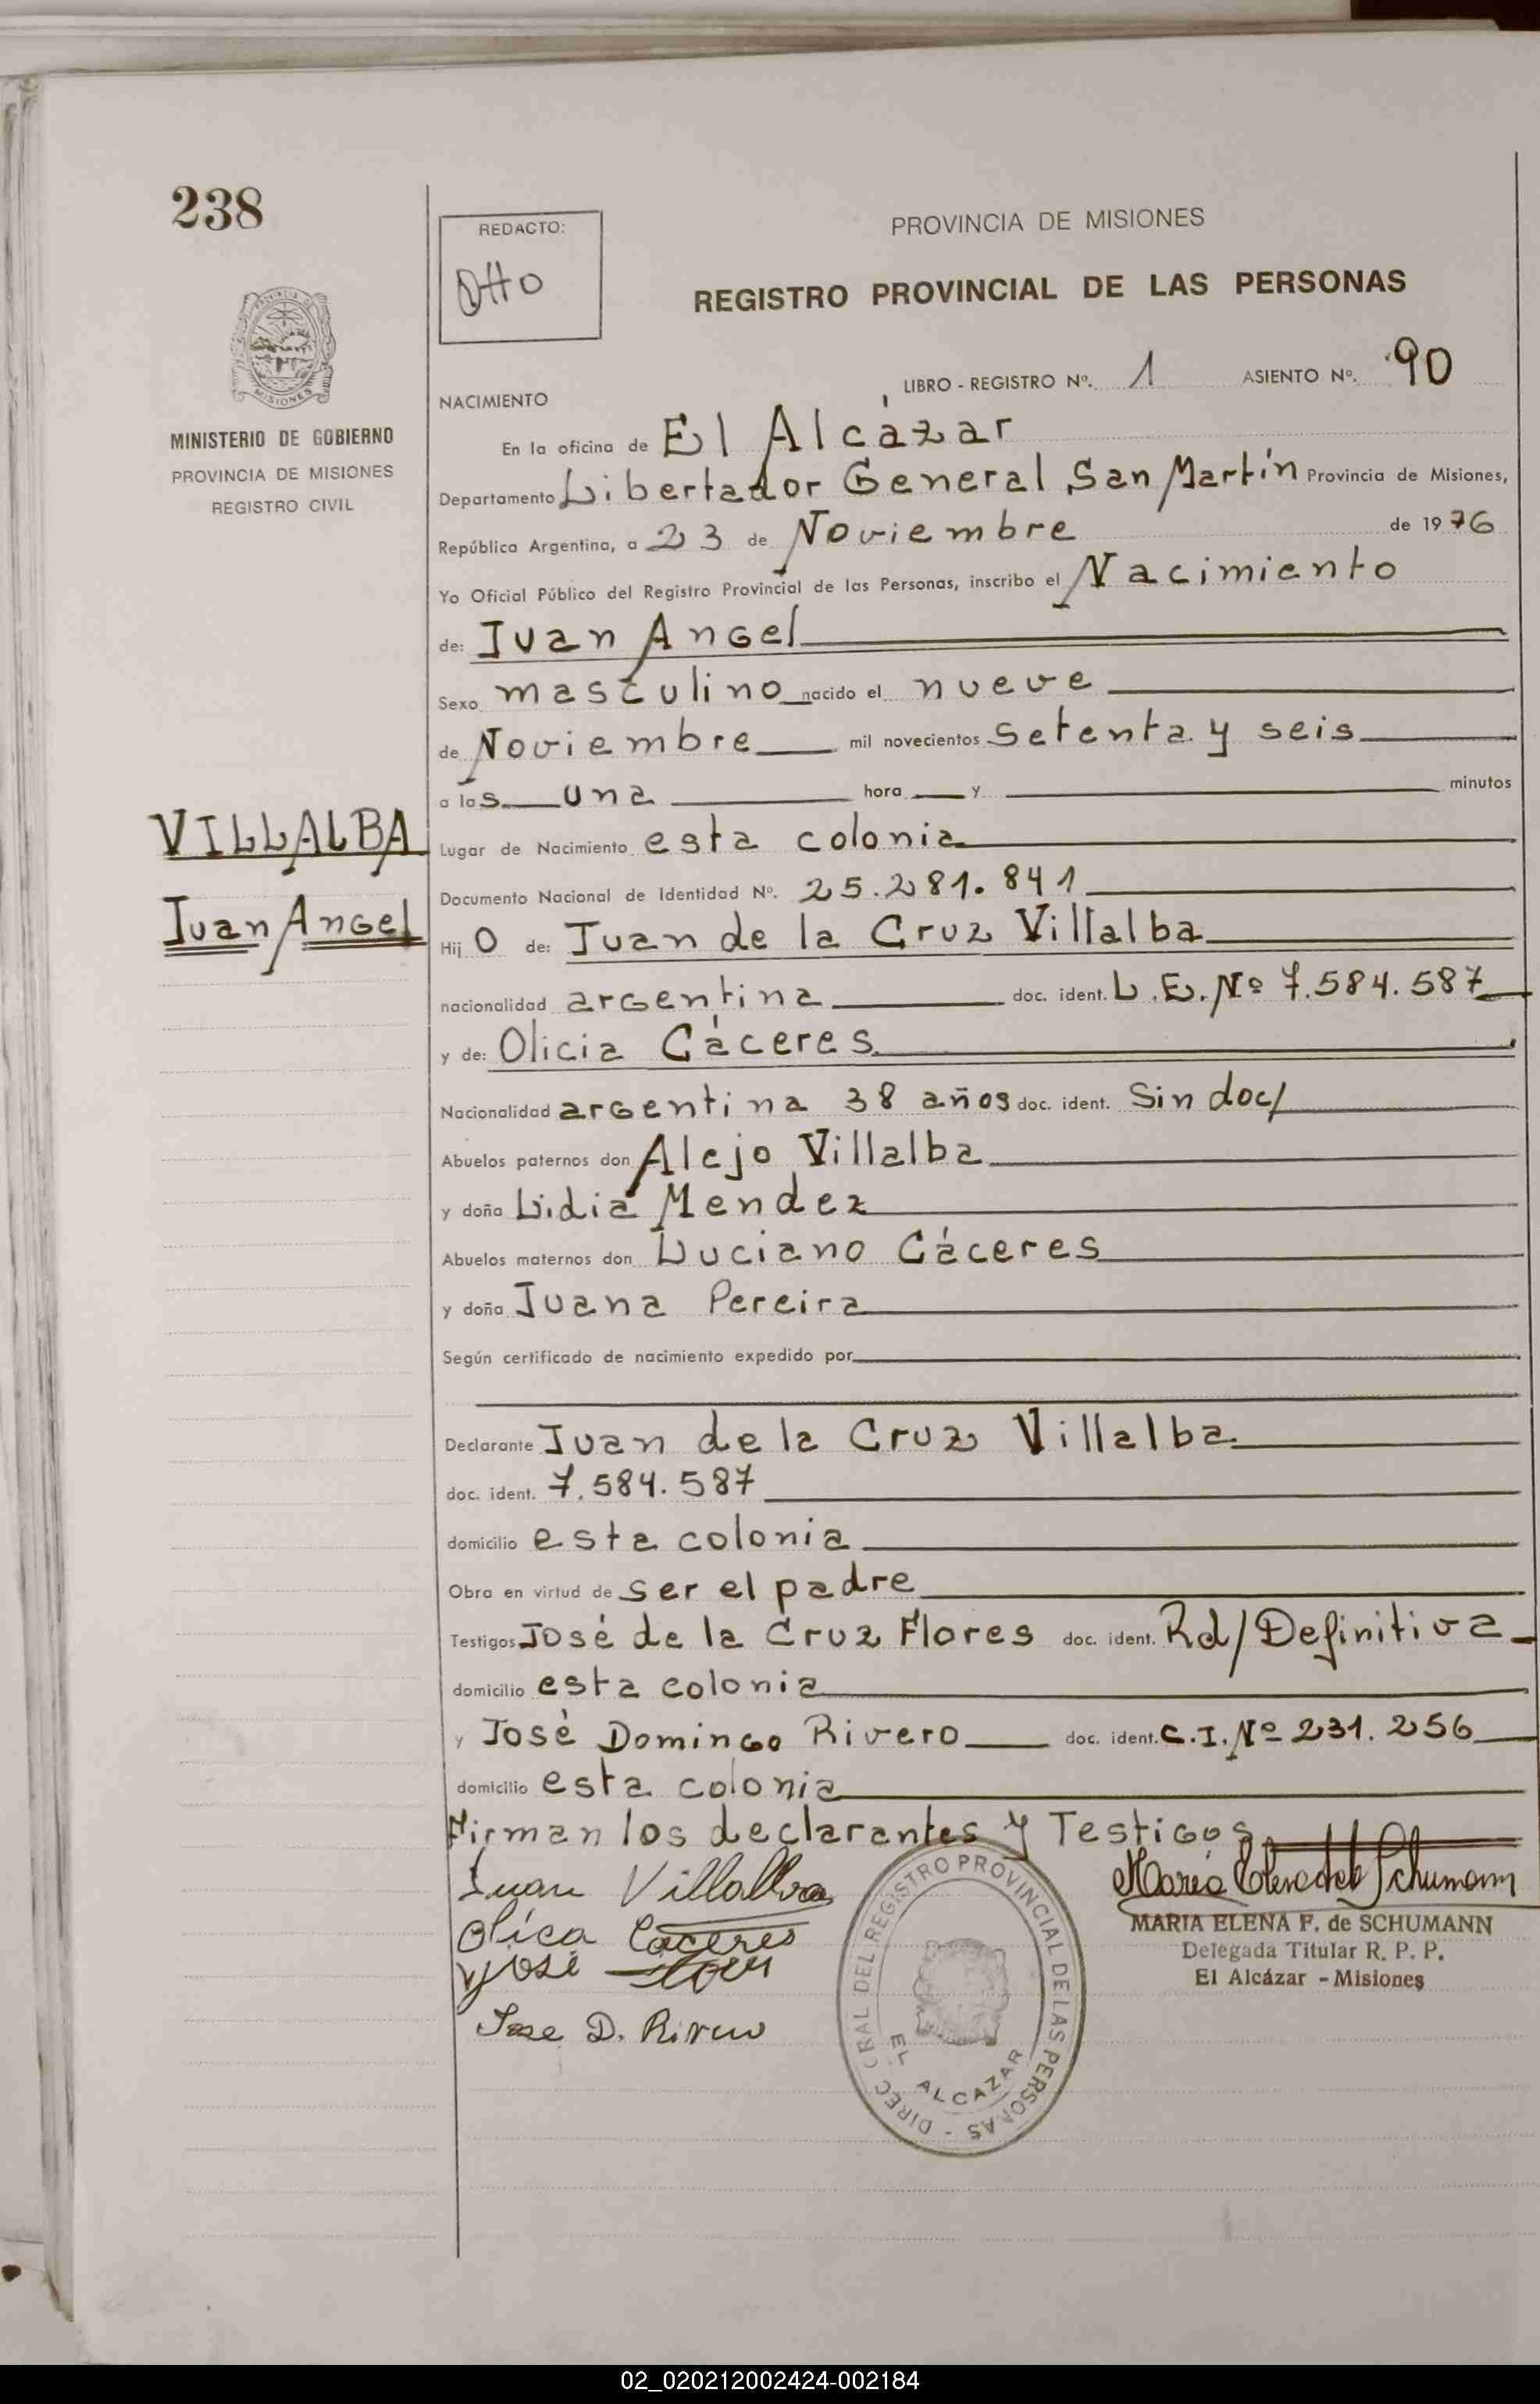 238
REDACTO:
Otto
PROVINCIA DE MISIONES
REGISTRO PROVINCIAL DE LAS PERSONAS
MISIONES
MINISTERIO DE GOBIERNO
PROVINCIA DE MISIONES
REGISTRO CIVIL
LIBRO - REGISTRO Nº. 1 ASIENTO Nº. 90
NACIMIENTO
En la oficina de El Alcázar
Departamento Libertador General San Martín Provincia de Misiones,
República Argentina, a 23 de Noviembre de 1976
Yo Oficial Público del Registro Provincial de las Personas, inscribo el Nacimiento
de: Juan Angel
Sexo masculino nacido el nueve
de Noviembre mil novecientos setenta y seis
a las una hora y minutos
VILLALBA
Juan Angel
Lugar de Nacimiento esta colonia
Documento Nacional de Identidad Nº. 25.281.841
Hijo de: Juan de la Cruz Villalba
nacionalidad argentina doc. ident. L.E. Nº 7.584.587
y de: Olicia Cáceres
Nacionalidad argentina 38 años doc. ident. Sin doc/
Abuelos paternos don Alejo Villalba
y doña Lidia Mendez
Abuelos maternos don Luciano Cáceres
y doña Juana Pereira
Según certificado de nacimiento expedido por
Declarante Juan de la Cruz Villalba
doc. ident. 7.584.587
domicilio esta colonia
Obra en virtud de ser el padre
Testigos José de la Cruz Flores doc. ident. Rd/Definitiva
domicilio esta colonia
y José Domingo Rivero doc. ident. C.I. Nº 231.256
domicilio esta colonia
Firman los declarantes y Testigos
Juan Villalba
Olica Caceres
José
Jose D. Rivero
DIREC GRAL DEL REGISTRO PROVINCIAL DE LAS PERSONAS -
EL ALCAZAR
MARIA ELENA F. de SCHUMANN
Delegada Titular R. P. P.
El Alcázar - Misiones
02_020212002424-002184